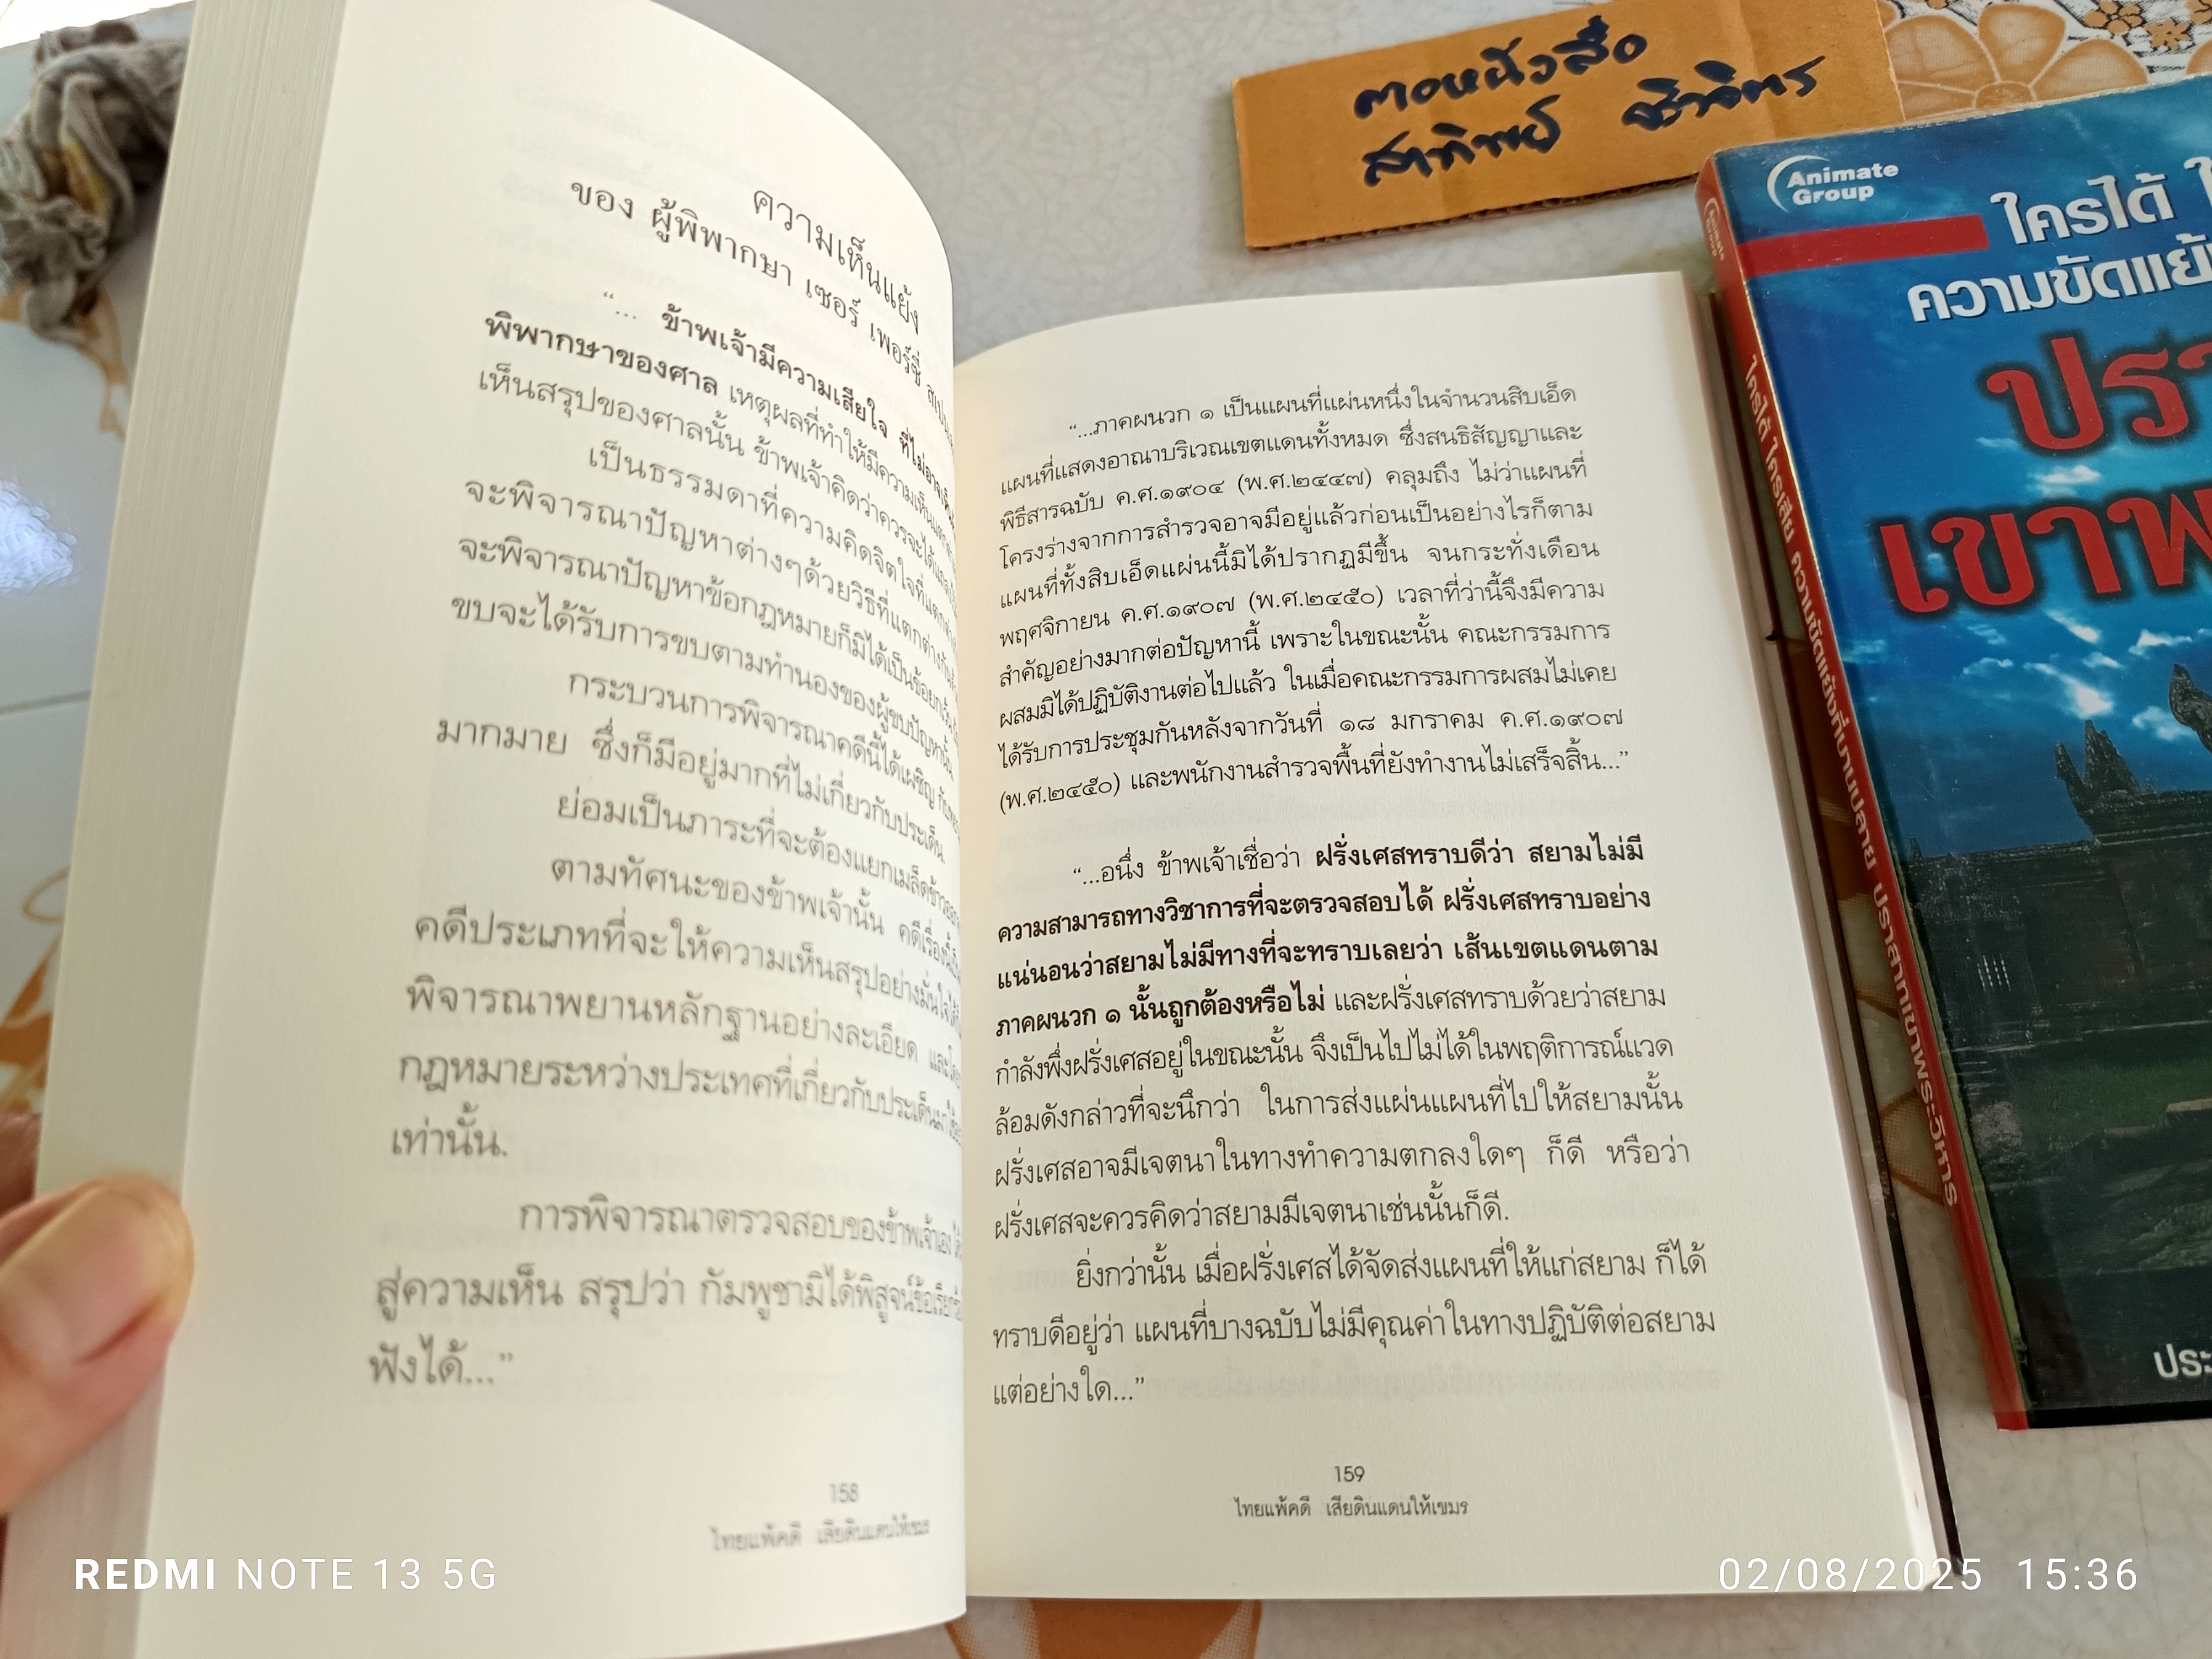 ความเห็นแย้ง
ของ ผู้พิพากษา เซอร์ เพอร์ซี่
“... ข้าพเจ้ามีความเสียใจ ที่ไม่อาจ
พิพากษาของศาล เหตุผลที่ทำให้มีความเห็น
เห็นสรุปของศาลนั้น ข้าพเจ้าคิดว่าควรจะได้
เป็นธรรมดาที่ความคิดจิตใจที่แตกต่าง
จะพิจารณาปัญหาต่างๆด้วยวิธีที่แตกต่างกัน
จะพิจารณาปัญหาข้อกฎหมายก็มิได้เป็นข้อยกเว้น
ขบจะได้รับการขบตามทำนองของผู้ขบปัญหานั้น
กระบวนการพิจารณาคดีนี้ได้เผชิญ
มากมาย ซึ่งก็มีอยู่มากที่ไม่เกี่ยวกับประเด็น
ย่อมเป็นภาระที่จะต้องแยกเมล็ดข้าว
ตามทัศนะของข้าพเจ้านั้น คดีเรื่องนี้
คดีประเภทที่จะให้ความเห็นสรุปอย่างมั่นใจได้
พิจารณาพยานหลักฐานอย่างละเอียด และ
กฎหมายระหว่างประเทศที่เกี่ยวกับประเด็นมา
เท่านั้น.
การพิจารณาตรวจสอบของข้าพเจ้าเอง
สู่ความเห็น สรุปว่า กัมพูชามิได้พิสูจน์ข้อ
ฟังได้...”
158
ไทยแพ้คดี เสียดินแดนให้เขมร
“...ภาคผนวก ๑ เป็นแผนที่แผ่นหนึ่งในจำนวนสิบเอ็ด
แผนที่แสดงอาณาบริเวณเขตแดนทั้งหมด ซึ่งสนธิสัญญาและ
พิธีสารฉบับ ค.ศ.๑๙๐๔ (พ.ศ.๒๔๔๗) คลุมถึง ไม่ว่าแผนที่
โครงร่างจากการสำรวจอาจมีอยู่แล้วก่อนเป็นอย่างไรก็ตาม
แผนที่ทั้งสิบเอ็ดแผ่นนี้มิได้ปรากฏมีขึ้น จนกระทั่งเดือน
พฤศจิกายน ค.ศ.๑๙๐๗ (พ.ศ.๒๔๕๐) เวลาที่ว่านี้จึงมีความ
สำคัญอย่างมากต่อปัญหานี้ เพราะในขณะนั้น คณะกรรมการ
ผสมมิได้ปฏิบัติงานต่อไปแล้ว ในเมื่อคณะกรรมการผสมไม่เคย
ได้รับการประชุมกันหลังจากวันที่ ๑๘ มกราคม ค.ศ.๑๙๐๗
(พ.ศ.๒๔๕๐) และพนักงานสำรวจพื้นที่ยังทำงานไม่เสร็จสิ้น...”
“...อนึ่ง ข้าพเจ้าเชื่อว่า ฝรั่งเศสทราบดีว่า สยามไม่มี
ความสามารถทางวิชาการที่จะตรวจสอบได้ ฝรั่งเศสทราบอย่าง
แน่นอนว่าสยามไม่มีทางที่จะทราบเลยว่า เส้นเขตแดนตาม
ภาคผนวก ๑ นั้นถูกต้องหรือไม่ และฝรั่งเศสทราบด้วยว่าสยาม
กำลังพึ่งฝรั่งเศสอยู่ในขณะนั้น จึงเป็นไปไม่ได้ในพฤติการณ์แวด
ล้อมดังกล่าวที่จะนึกว่า ในการส่งแผ่นแผนที่ไปให้สยามนั้น
ฝรั่งเศสอาจมีเจตนาในทางทำความตกลงใดๆ ก็ดี หรือว่า
ฝรั่งเศสจะควรคิดว่าสยามมีเจตนาเช่นนั้นก็ดี.
ยิ่งกว่านั้น เมื่อฝรั่งเศสได้จัดส่งแผนที่ให้แก่สยาม ก็ได้
ทราบดีอยู่ว่า แผนที่บางฉบับไม่มีคุณค่าในทางปฏิบัติต่อสยาม
แต่อย่างใด...”
159
ไทยแพ้คดี เสียดินแดนให้เขมร
Animate
Group
ใครได้
ความขัดแย้
ปรา
เขาพ
ประ
ใครได้ ใครเสีย ความขัดแย้งที่บานปลาย ปราสาทเขาพระวิหาร
REDMI NOTE 13 5G
02/08/2025 15:36